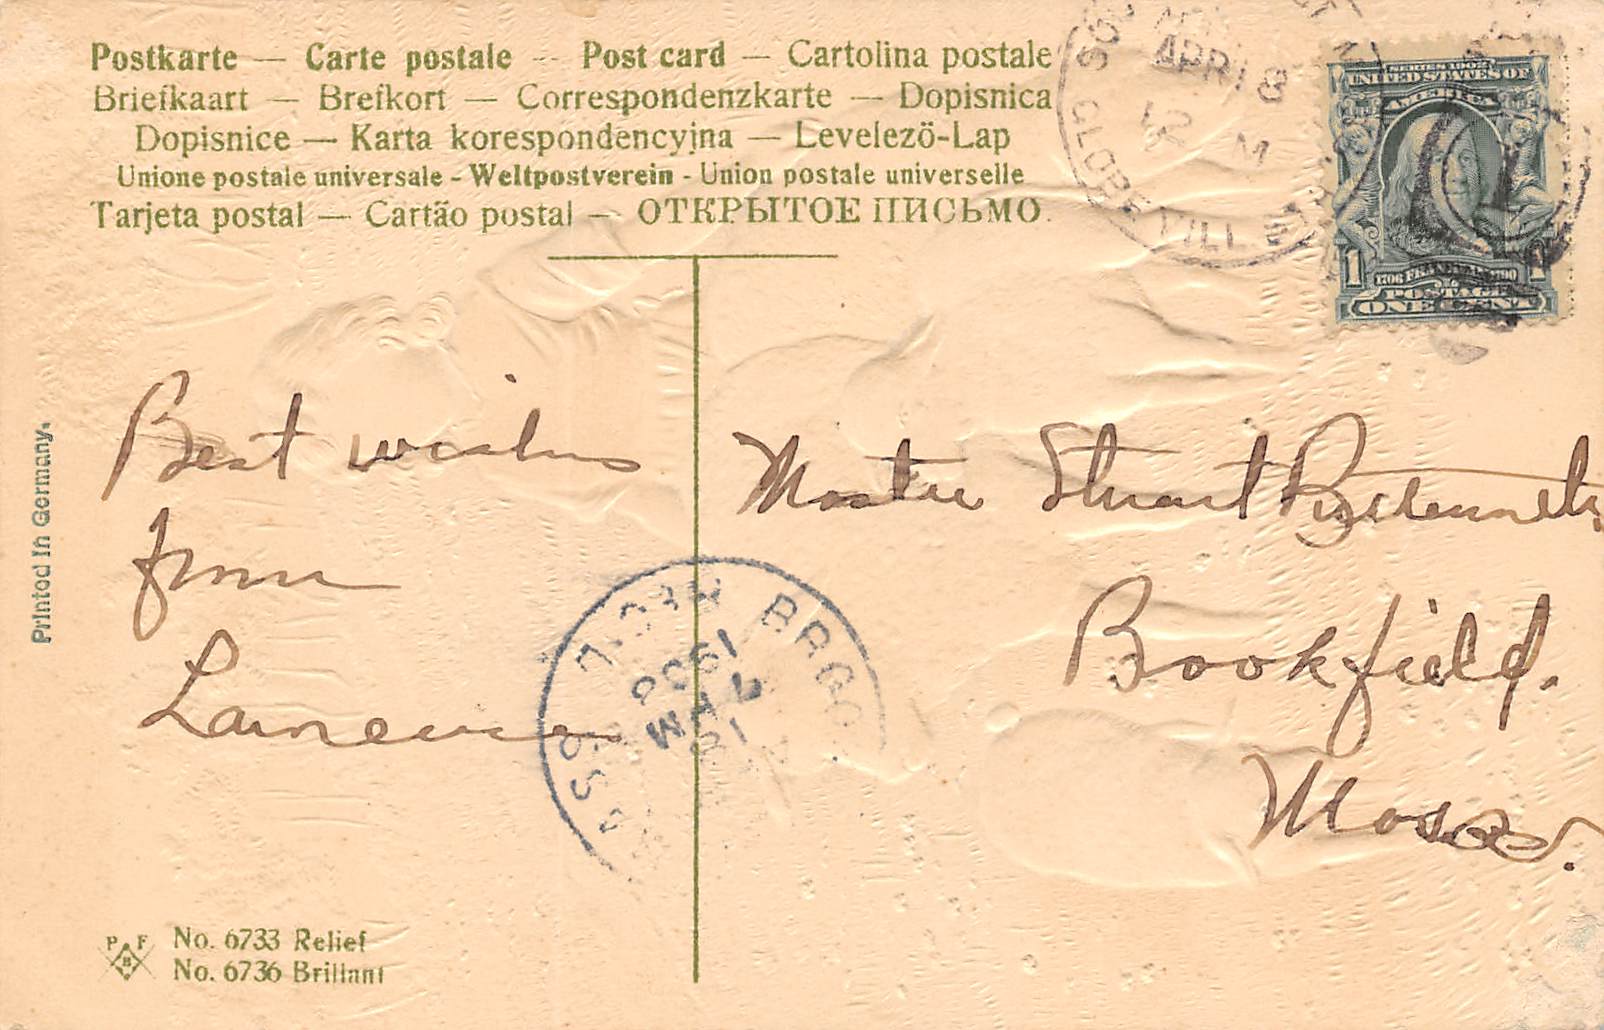 Postkarte — Carte postale — Post card — Cartolina postale
Briefkaart — Brefkort — Correspondenzkarte — Dopisnica
Dopisnice — Karta korespondencyjna — Levelező-Lap
Unione postale universale - Weltpostverein - Union postale universelle
Tarjeta postal — Cartão postal — ОТКРЫТОЕ ПИСЬМО.
APR 18
12 M
GLOBE VILL
SERIES 1902
UNITED STATES OF
AMERICA
1 1706 FRANKLIN 1790 1
POSTAGE
ONE CENT
Best wishes
from
Master Stuart
Brookfield.
Mass.
1908
7 AM
18
Printed in Germany.
P F
B
No. 6733 Relief
No. 6736 Brillant